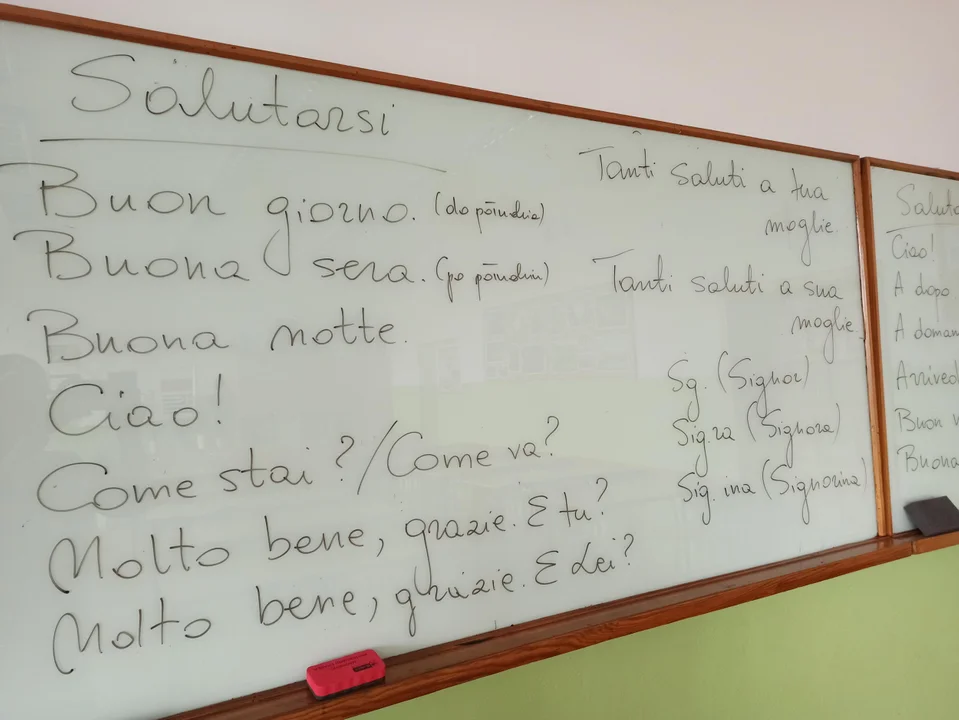 Salutarsi
Buon giorno. (do põindŕia)
Buona sera. (po põindŕi)
Buona notte.
Ciao!
Come stai?/Come va?
Molto bene, grazie. E tu?
Molto bene, grazie. E Lei?
Tanti saluti a tua
moglie.
Tanti saluti a sua
moglie.
Sg. (Signor)
Sig.ra (Signora)
Sig.ina (Signorina)
Saluta
Ciao!
A dopo
A doman
Arrived
Buon
Buona